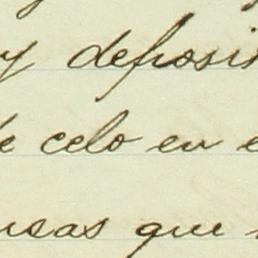 y deposi
de celo en e
nsas que